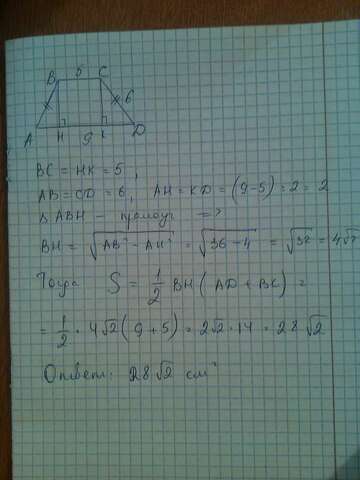 5
B C
6
A H 9 K D
BC = HK = 5 ,
AB = CD = 6, AH = KD = (9-5):2 = 2
Δ ABH - прямоуг =>
BH = √AB² - AH² = √36-4 = √32 = 4√2
Тогда S = 1/2 BH ( AD + BC ) =
= 1/2 · 4√2 ( 9 + 5 ) = 2√2 · 14 = 28√2
Ответ: 28√2 см²